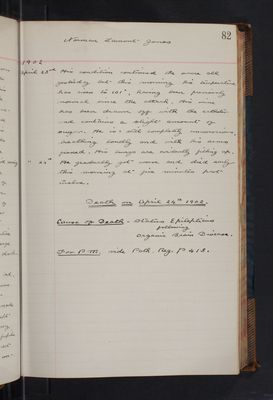 82
Norman Lamont Jones
1902
April 23rd His condition continued the same all
yesterday but this morning his temperature
has risen to 101°, having been previously
normal since the attack. His urine
has been drawn off with the catheter
and contains a slight amount of
sugar. He is still completely unconscious,
breathing loudly and with his arms
flexed. His lungs are evidently filling up.
" 24th He gradually got worse and died early
this morning at five minutes past
twelve.
Death on April 24th 1902.
Cause of Death - Status Epilepticus
following
Organic Brain Disease.
For P.M., vide Path. Reg. P 413.